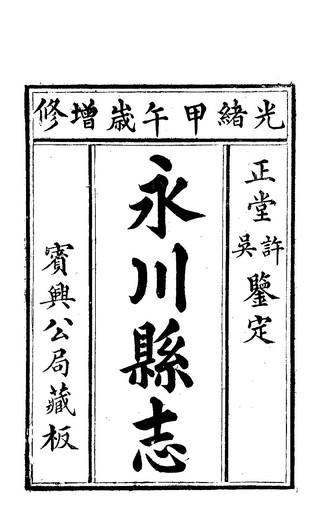 光緒甲午歲增修
正堂許吳鑒定
永川縣志
賓興公局藏板